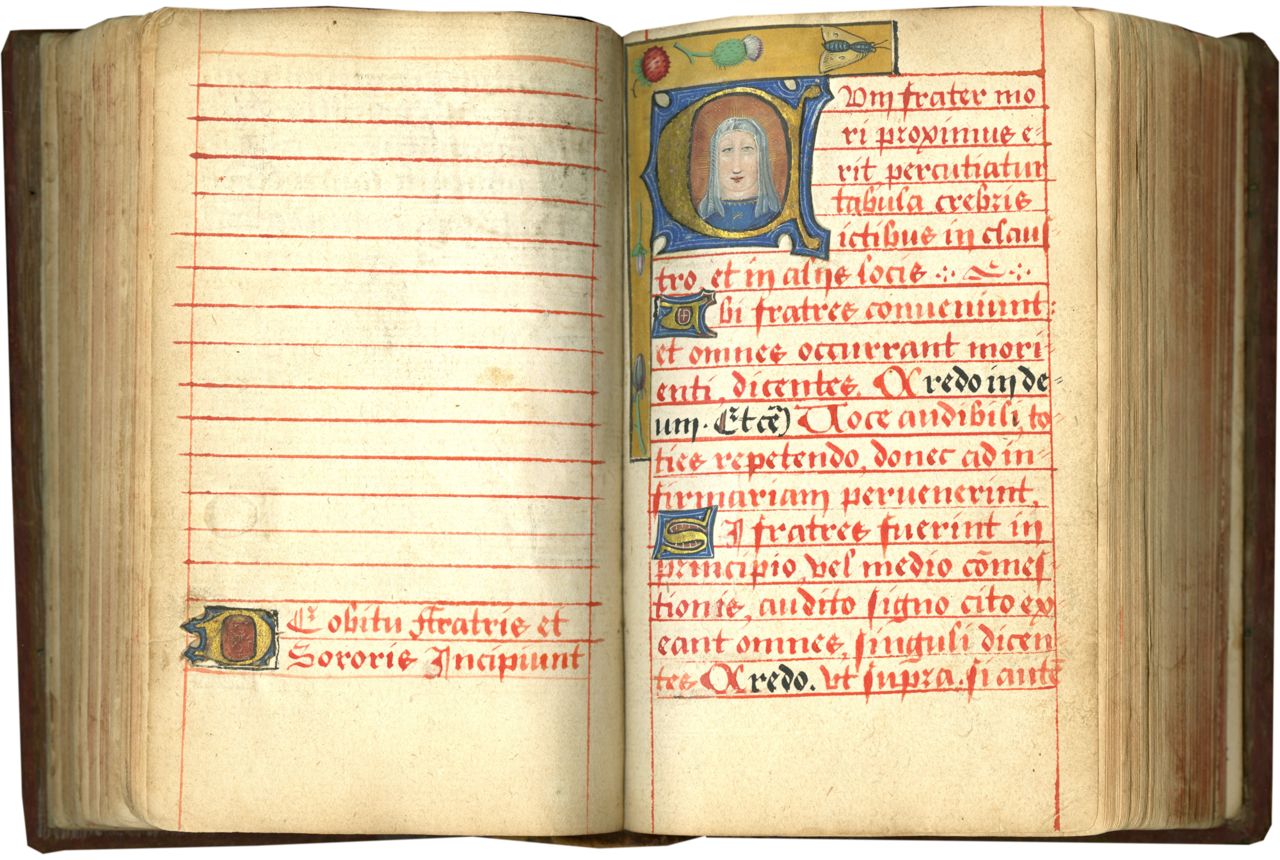 DE obitu ffratris et
Sororis Incipiunt
CVm frater mo
ri proximus e-
rit percutiatur
tabula crebris
ictibus in claus
tro, et in alijs locis
Vbi fratres conueniunt:
et omnes occurrant mori-
enti, dicentes. Credo in de-
um. Et cē) Uoce audibili, to
ties repetendo, donec ad in-
firmariam peruenerint,
SI fratres fuerint in
principio, vel medio cōmes-
tionis, audito signo cito ex
eant omnes, singuli dicen
tes Credo. vt supra. si autē